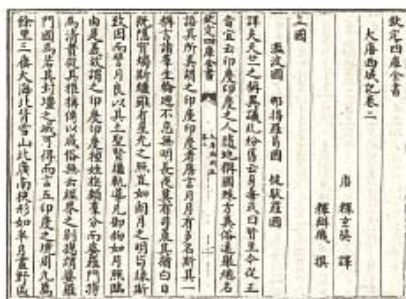 欽定四庫全書
大唐西域記卷二
唐 釋玄奘 譯
釋辯機 撰
三國
濫波國 那揭羅曷國 健馱羅國
詳夫天竺之稱異議糾紛舊云身毒或曰賢豆今從正
音宜云印度印度之人隨地稱國殊方異俗遙舉總名
欽定四庫全書
語其所美謂之印度印度者唐言月月有多名斯其一
稱言諸羣生輪迴不息無明長夜莫有司晨其猶白日
既隱宵燭斯繼雖有星光之照豈如朗月之明苟緣斯
致因而譬月良以其土聖賢繼軌導凡御物如月照臨
由是義故謂之印度印度種姓族類羣分而婆羅門特
為清貴從其雅稱傳以成俗無云經界之別總謂婆羅
門國焉若其封疆之域可得而言五印度之境周九萬
餘里三垂大海北背雪山北廣南狹形如半月畫野區